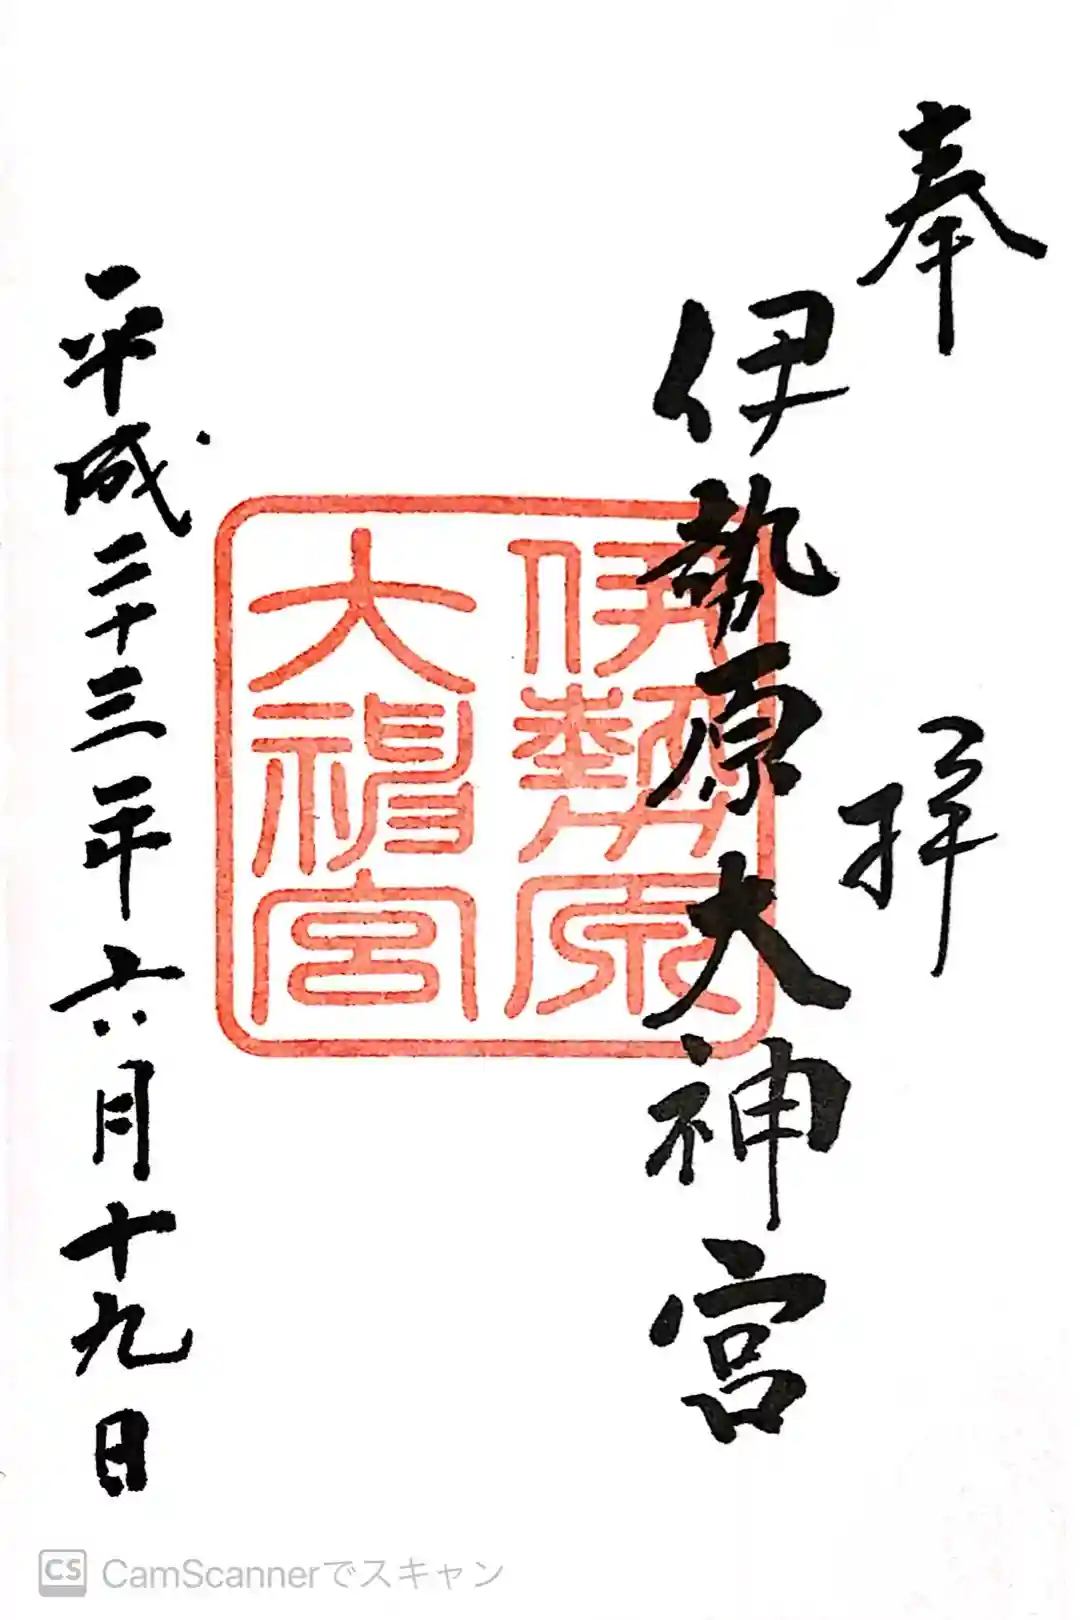 奉拝
伊勢原大神宮
伊勢原
大神宮
平成二十三年六月十九日
CS CamScannerでスキャン